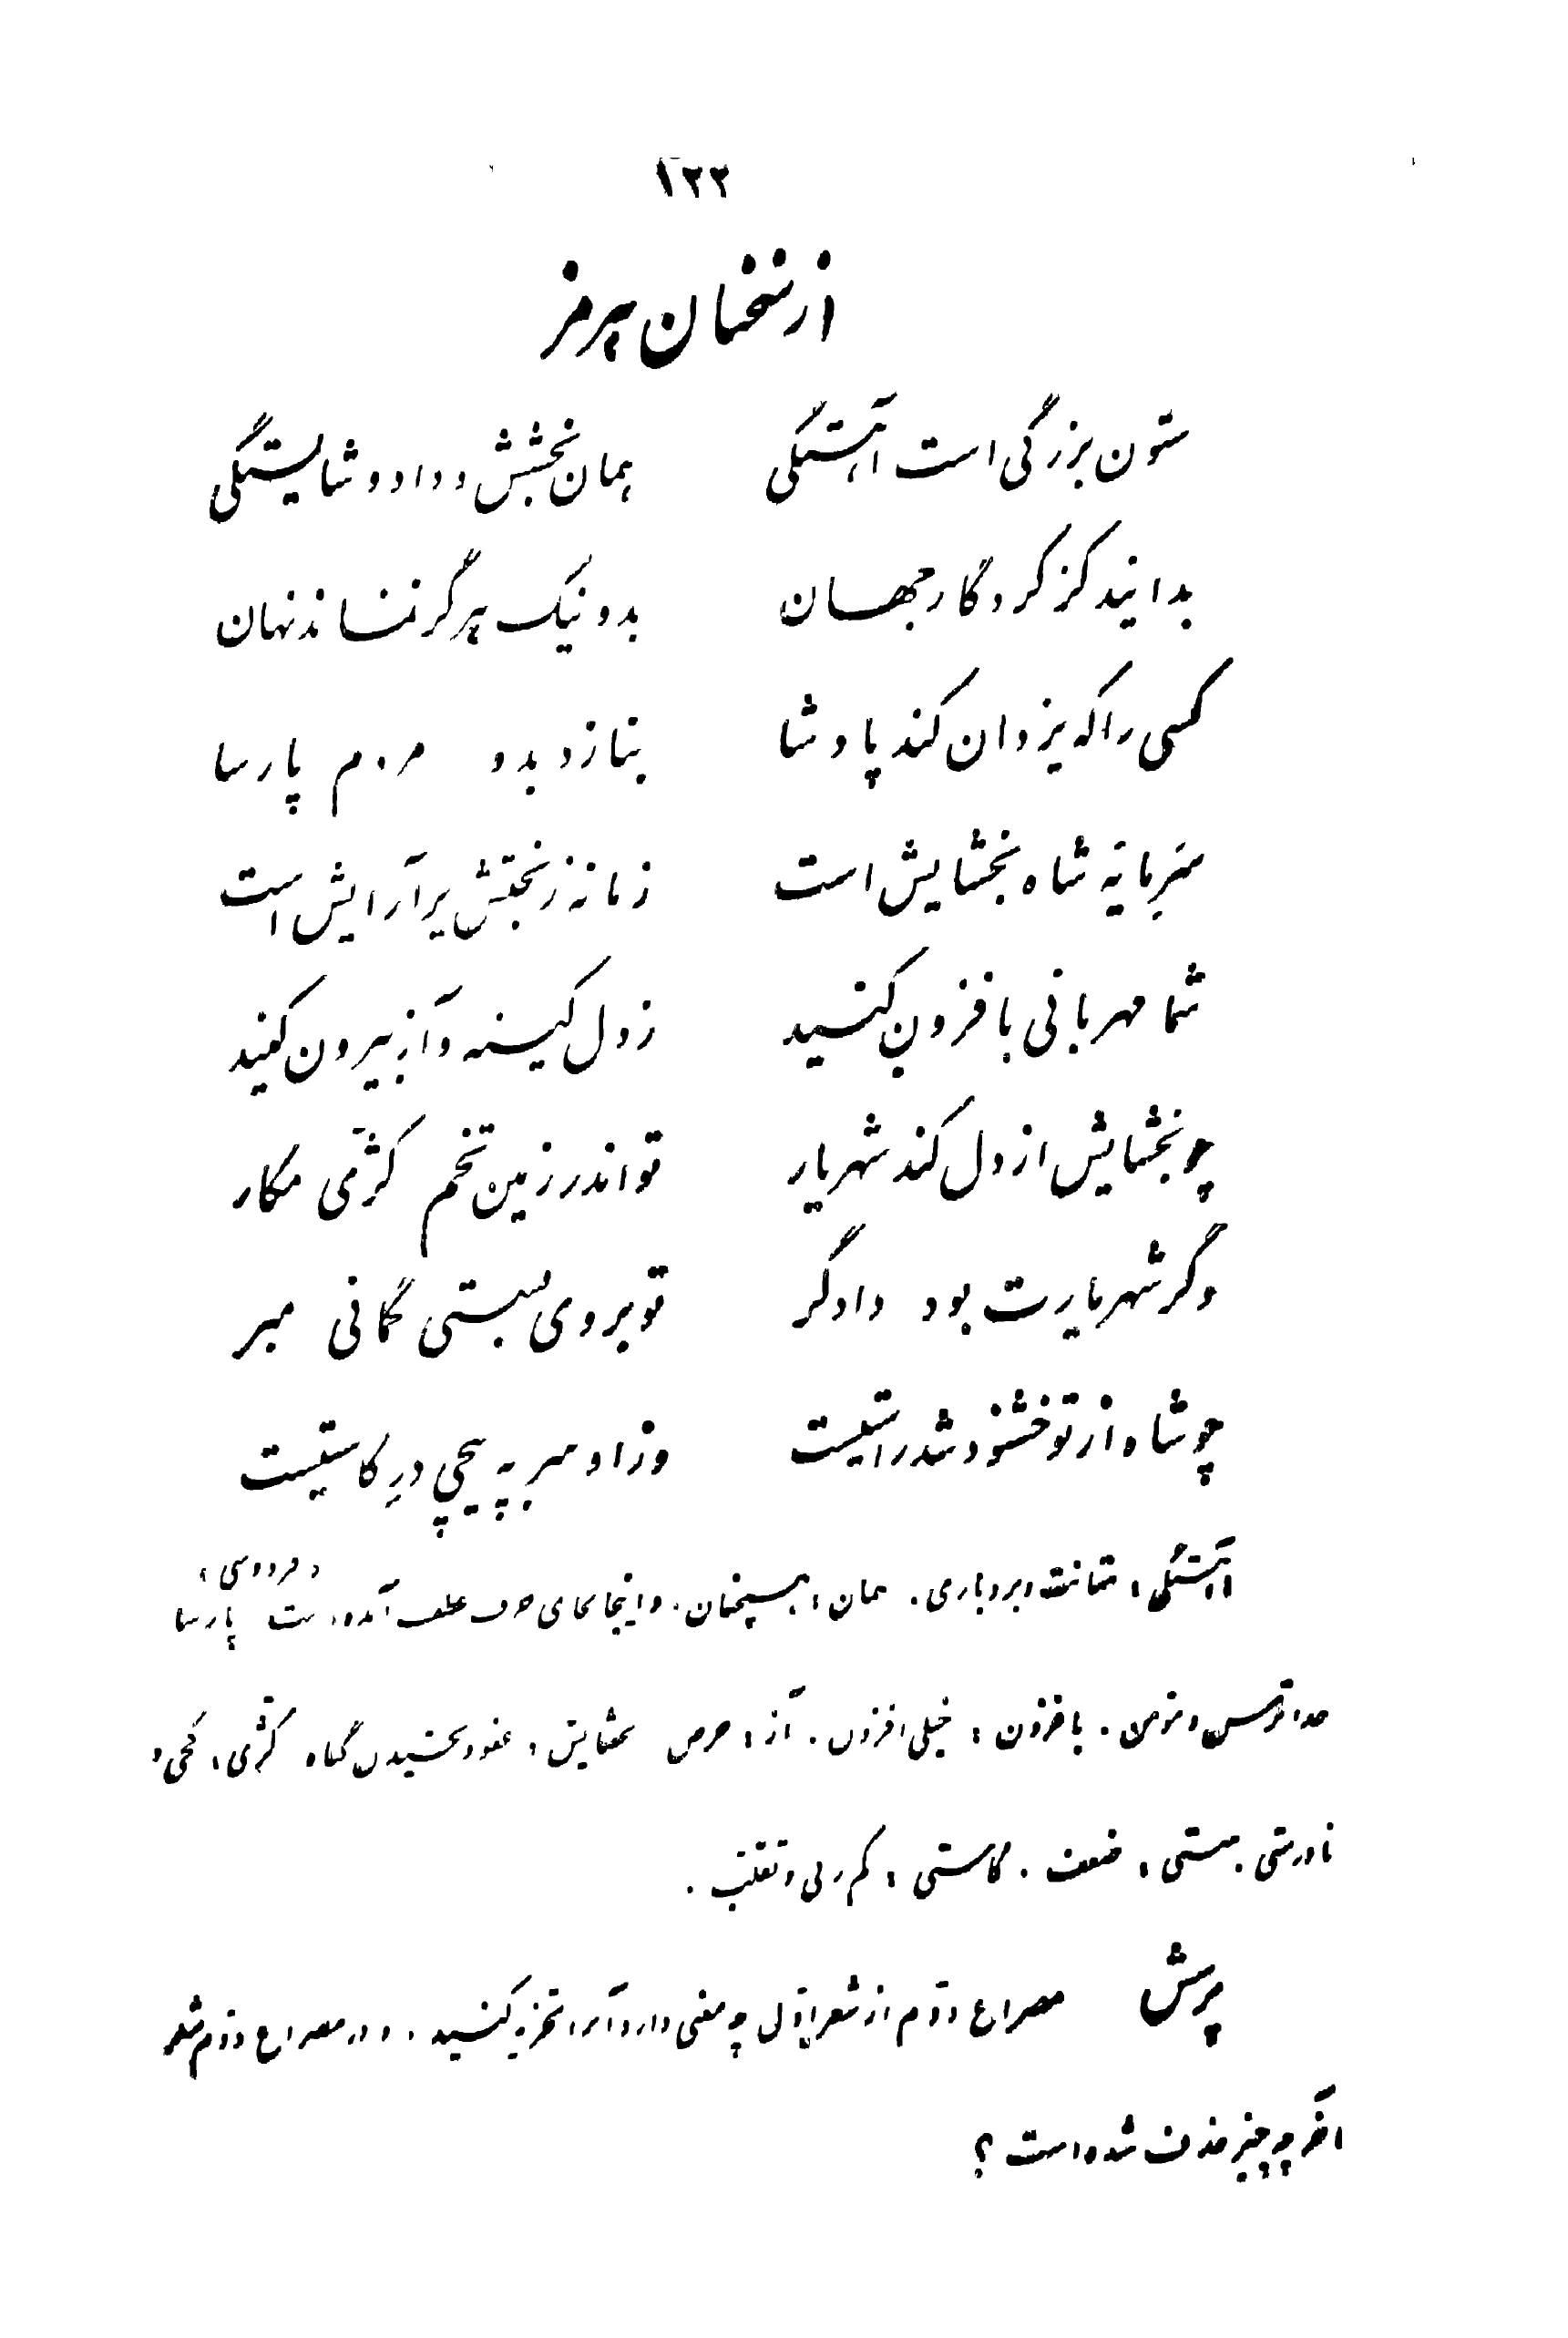 ۱۲۲
از سخنان هرمز
ستون بزرگی است آهستگی همان بخشش و داد و شایستگی
بدانید کز کردگار جهان بد و نیک هرگز نماند نهان
کسی را که یزدان کند پادشا بنازد بدو مردم پارسا
هنرمایهٔ شاه بخشایش است زمانه ز بخشش بر آرایش است
شما مهربانی بافزون کنید ز دل کینه و آز بیرون کنید
چو بخشایش از دل کند شهریار تو اندر زمین تخم کژّی مکار
وگر شهریارت بود دادگر تو بر وی بسستی گمانی مبر
چو شاه از تو خشنود شد راستیست وز او سر به پیچی درِ کاستیست
« فردوسی »
آهستگی : متانت و بردباری . همان : همچنان . و اینجا بجای حرف عطف آمده است پارسا
خدا ترس و مؤمن . بافزون : خیلی افزون . آز : حرص بخشایش : عفو و بخشیدن گناه کژّی : کجی و
نادرستی . سستی : ضعف . کاستی : کم دلی و تقلّب .
پرسش مصراع دوّم از شعر اوّل چه معنی دارد آنرا تجزیه کنید . و در مصراع دوّم شعر
آخر چه چیز حذف شده است ؟